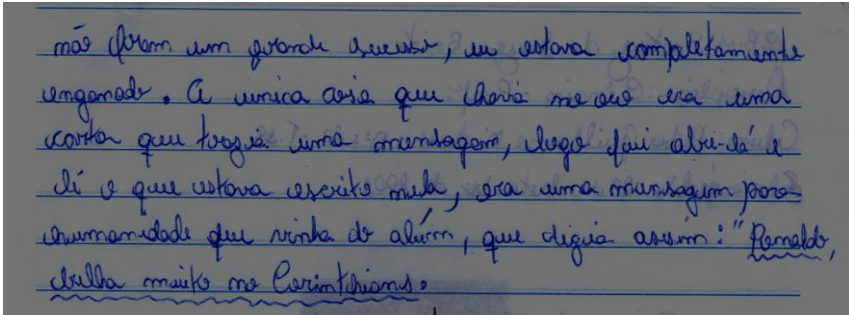 não foram um grande sucesso, eu estava completamente
enganado. A unica coisa que havia no ovo era uma
carta que trazia uma mensagem, logo fui abri-lá e
li o que estava escrito nela, era uma mensagem para
humanidade que vinha do além, que digia assim: "Ronaldo,
brilha muito no Corinthians.